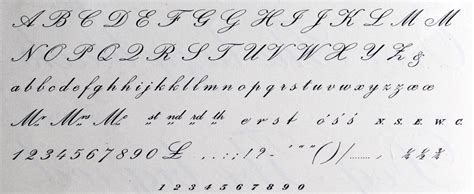 A B C D E F G G H I J K L M M
N O P Q R S T U V W X Y Z &
a b c d e f g h h i j k k l l m n o p q r s t u v w x y z z æ œ
Mr Mrs Me st nd rd th e r s t ó ś ś N. S. E. W. C.
1 2 3 4 5 6 7 8 9 0 £ . , : ; ! ? - ' " " ( ) / ........ ¼ ½ ¾
1 2 3 4 5 6 7 8 9 0